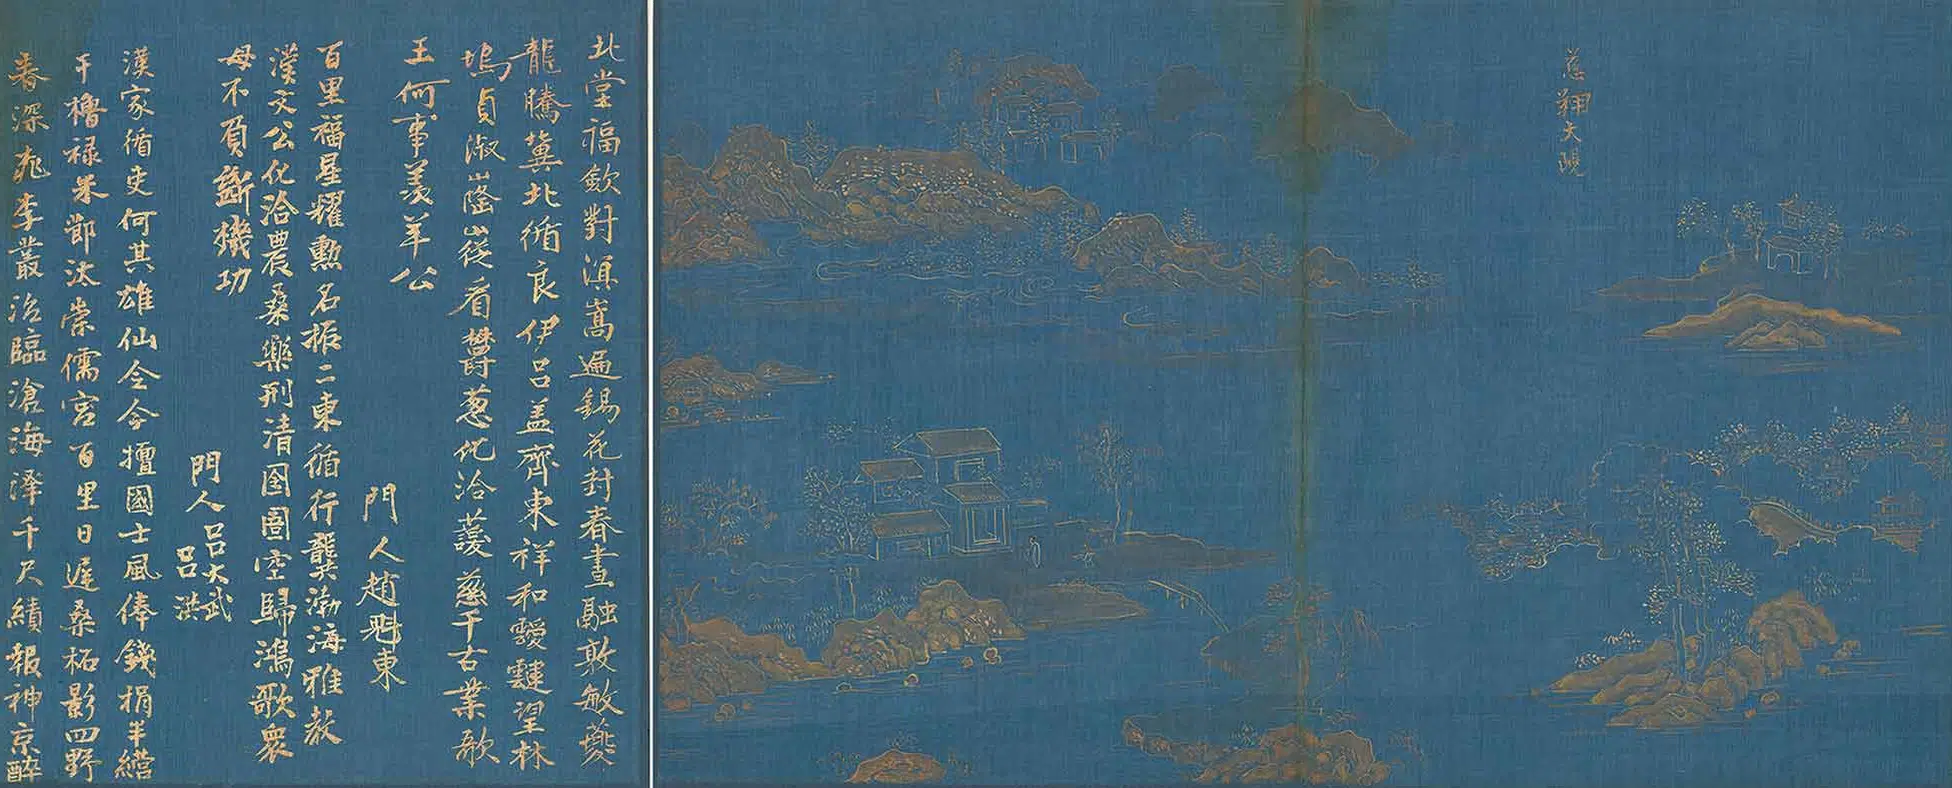 慈翔大觀
北堂福歛對滇嵩遍錫花封春晝融敦敏夔
龍騰冀北循良伊呂盖齊東祥和靉靆望林
塢貞淑崆從看欝蔥化洽護慈千古業歌
王何事羡羊公
門人趙魁東
百里福星耀勲名振二東循行龔渤海雅教
漢文公化洽農桑樂刑清囹圄空歸鴻歌衆
母不負斷機功
門人呂大武
呂洪
漢家循吏何其雄仙令今擅國士風俸錢捐半繕
干櫓祿米節汰崇儒宮百里日遲桑柘影四野
春深花李叢治臨滄海澤千尺績報神京醉